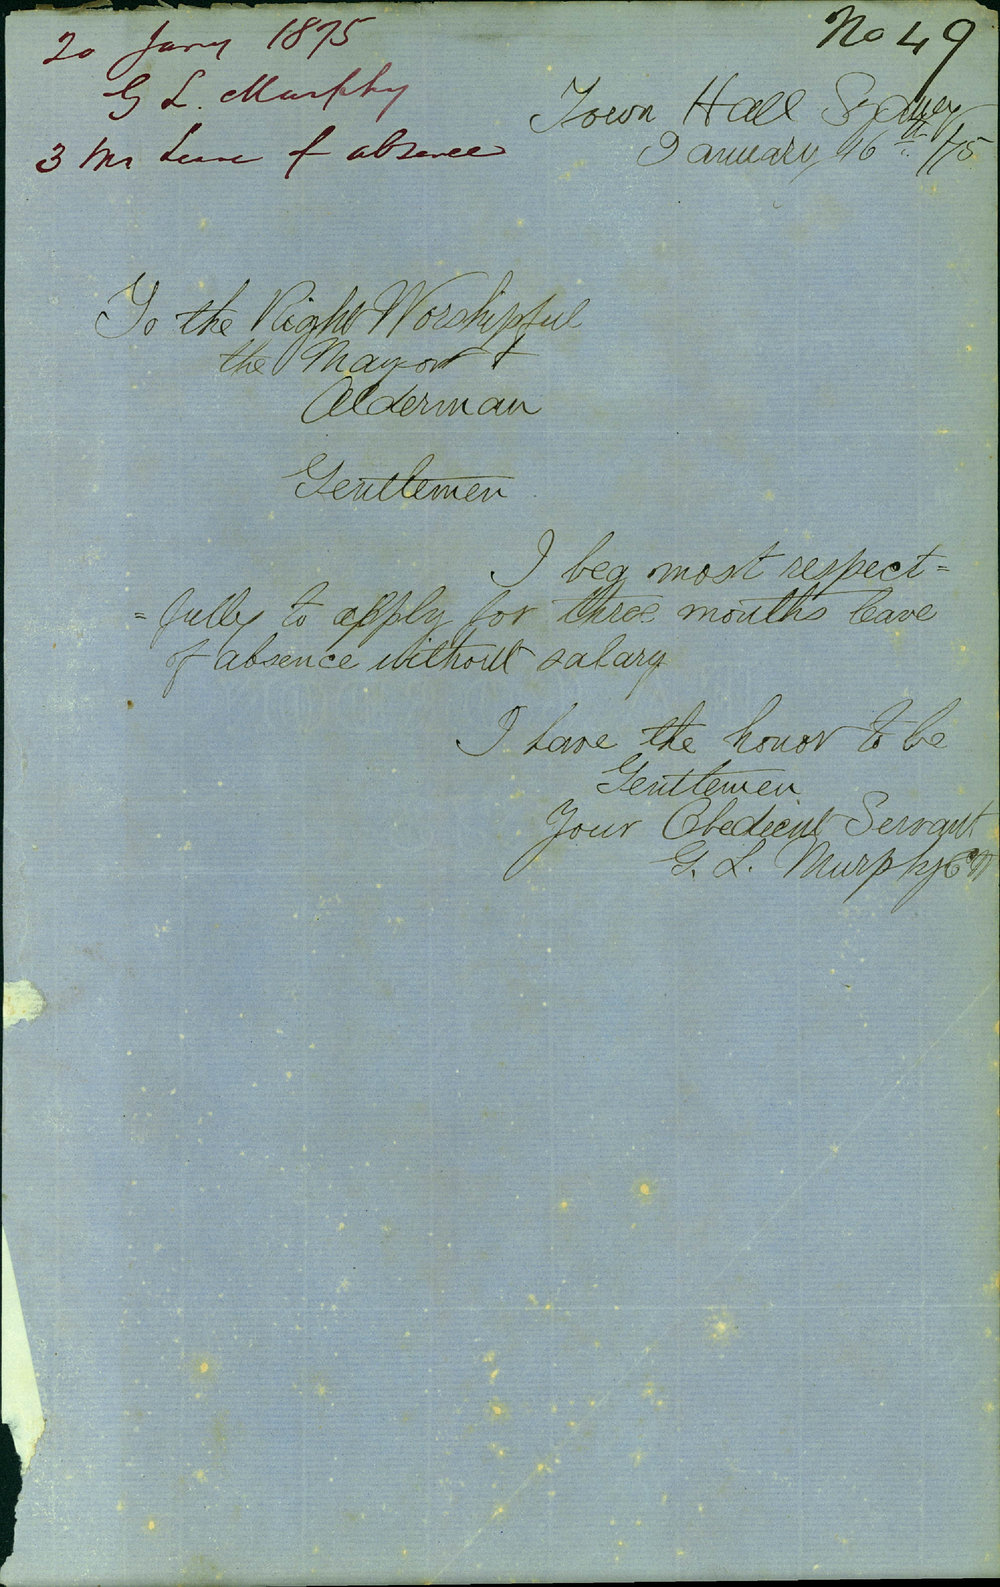 20 Jany 1875
G L. Murphy
3 Ms Leave of absence
No 49
Town Hall Sydney
January 16th /75
To the Right Worshipful
the Mayor &
Alderman
Gentlemen
I beg most respect=
=fully to apply for three months leave
of absence without salary
I have the honor to be
Gentlemen
Your Obedient Servant
G. L. Murphy